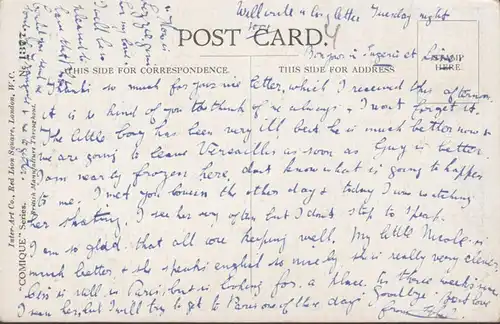 Will write a long letter Tuesday night
POST CARD.
Bonjour à Eugenie et
STAMP
HERE.
THIS SIDE FOR CORRESPONDENCE.
THIS SIDE FOR ADDRESS.
Thanks so much for your nice letter, which I received this afternoon
it is so kind of you to think of me always, I wont forget it.
The little boy has been very ill but he is much better now &
we are going to leave Versailles as soon as Guy is better.
I am nearly frozen here, dont know what is going to happen
to me. I met you cousin the other day & today I was watching
her skating. I see her very often but I don't stop to speak.
I am so glad that all are keeping well. My little Nicole is
much better, & she speaks english so nicely she is really very clever
is still in Paris, but is looking for a place. In three weeks
I can but I will try to get to Paris one of these days. Goodbye, best love
from
"COMIQUE" Series.
Inter-Art Co., Red Lion Square, London, W.C.
British Manufacture Throughout.